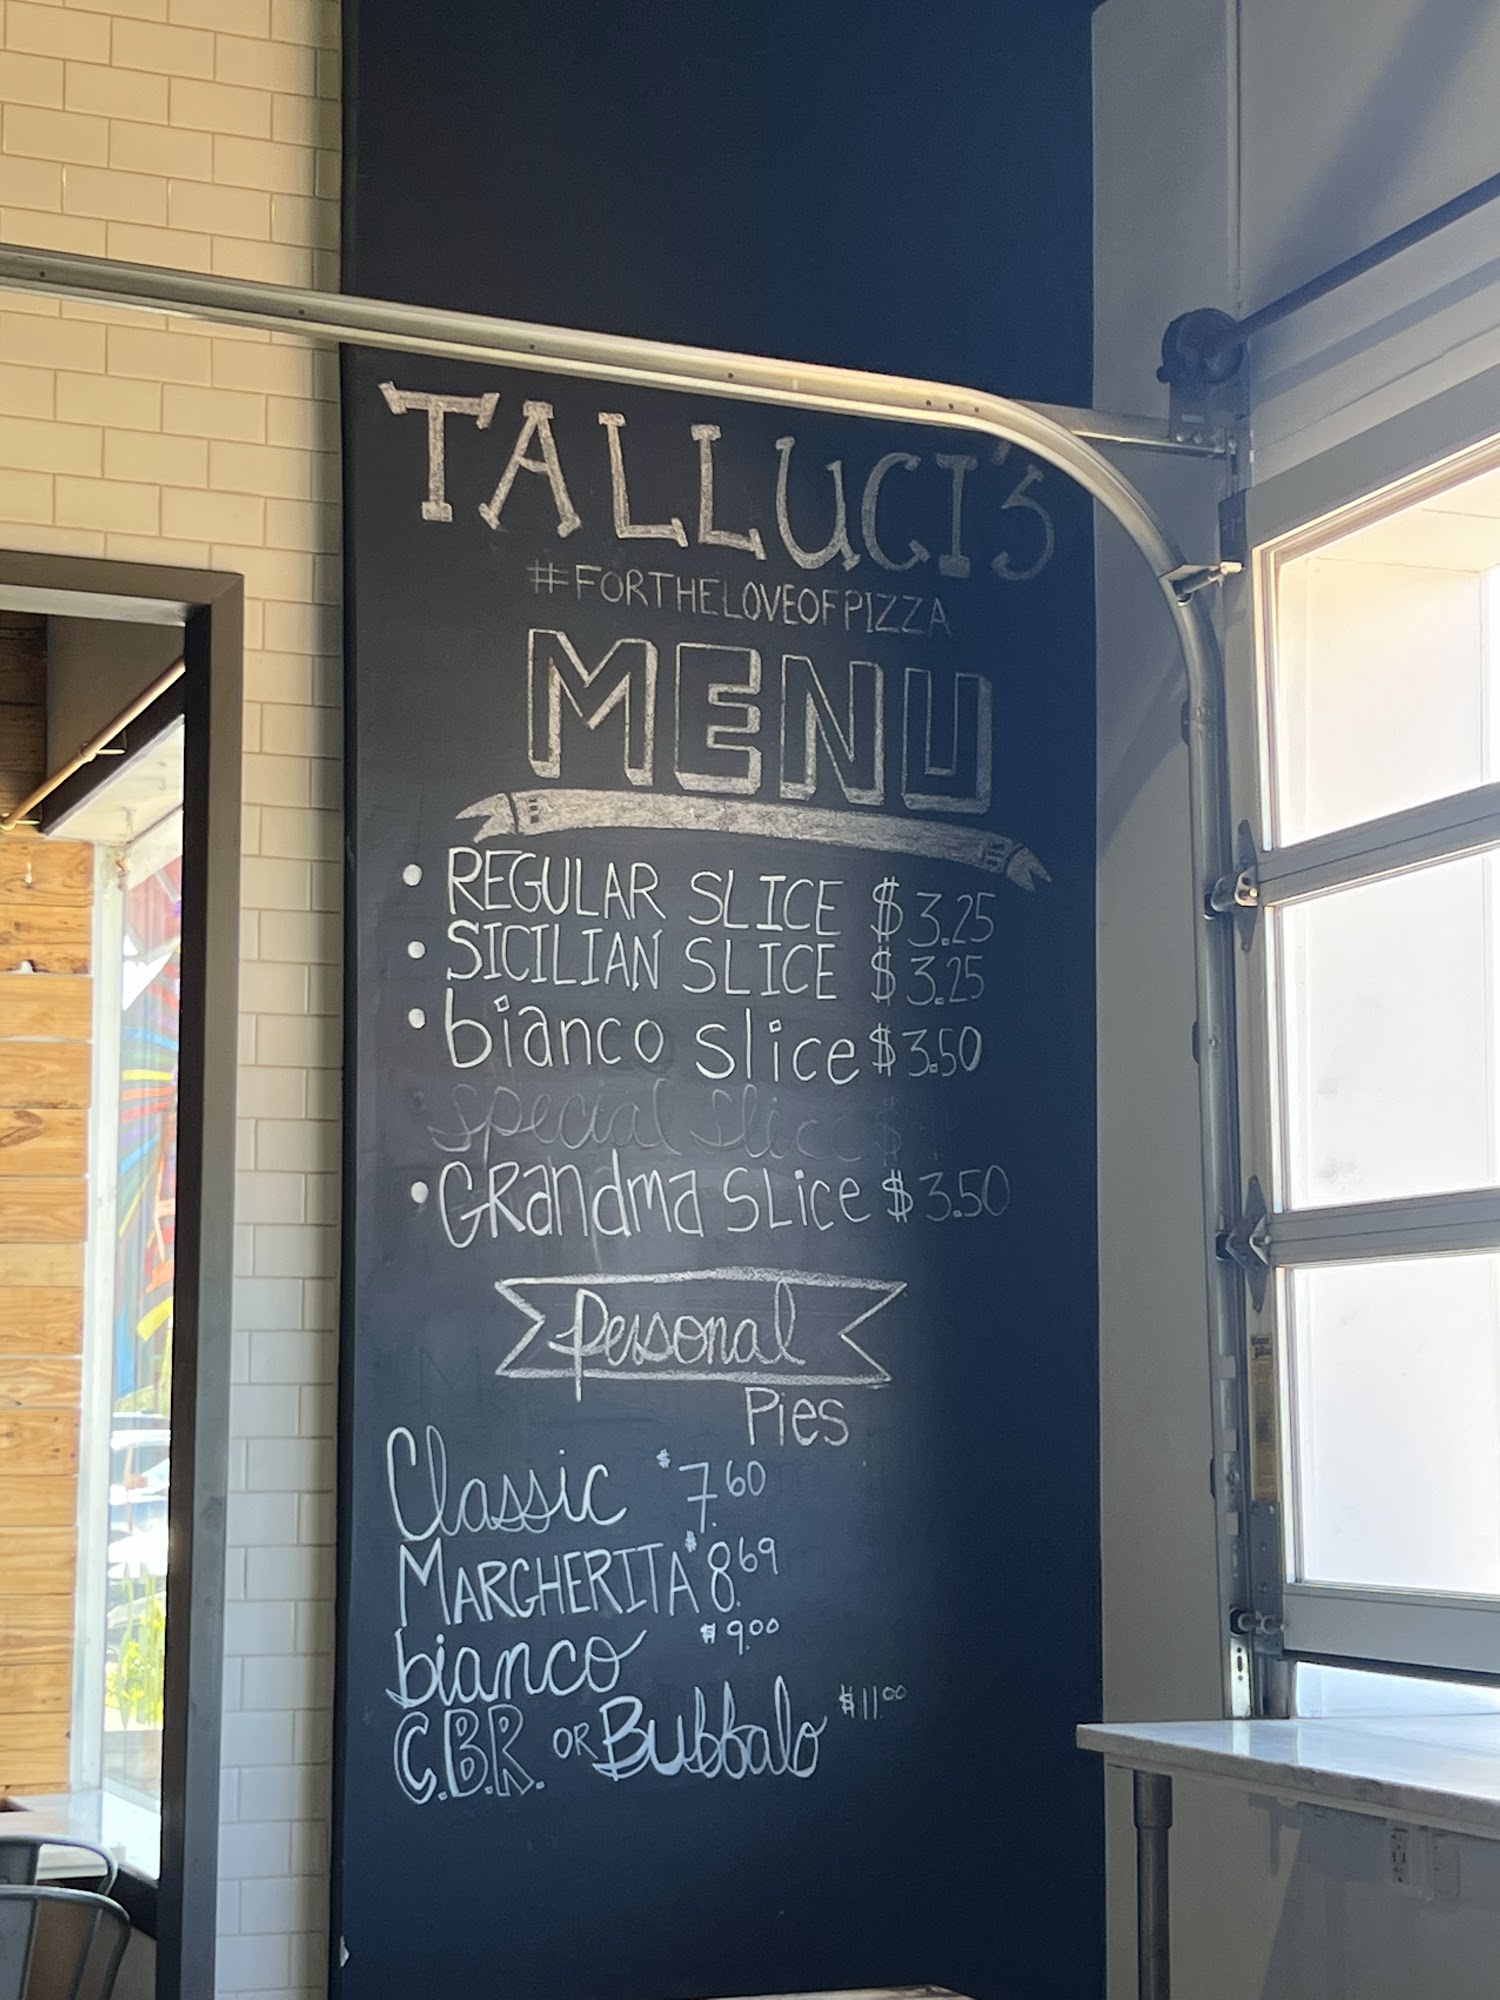 TALLUCI'S
#FORTHELOVEOFPIZZA
MENU
• REGULAR SLICE $3.25
• SICILIAN SLICE $3.25
• bianco slice $3.50
special slice $
• GRandma SLice $3.50
personal
Pies
Classic $7.60
MARGHERITA $8.69
bianco $9.00
C.B.R. OR Buffalo $11.00